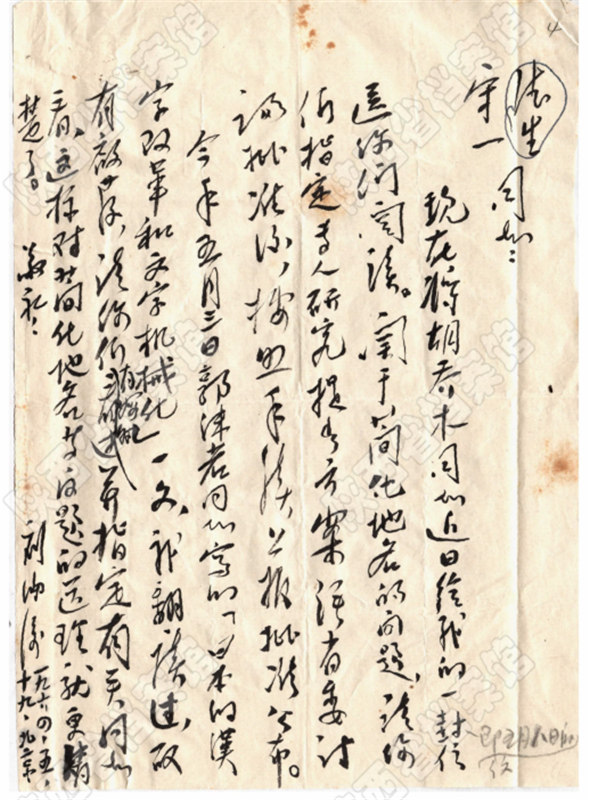 4
德生
守一 同志:
现在将胡乔木同志近日给我的一封信
送你们阅读。关于简化地名的问题,请你
们指定专人研究提出方案经省委讨
论批准后,按照手续上报批准公布。
今年五月三日郭沫若同志写的「日本的汉
字改革和文字机械化」一文,我翻读过,故
有启发,请你们并指定有关同志
看看,这样对简化地名等问题的道理就更清
楚了。 敬礼:
刘澜涛
一九六四、五、
十九、
即五月八日的
陕西省档案馆